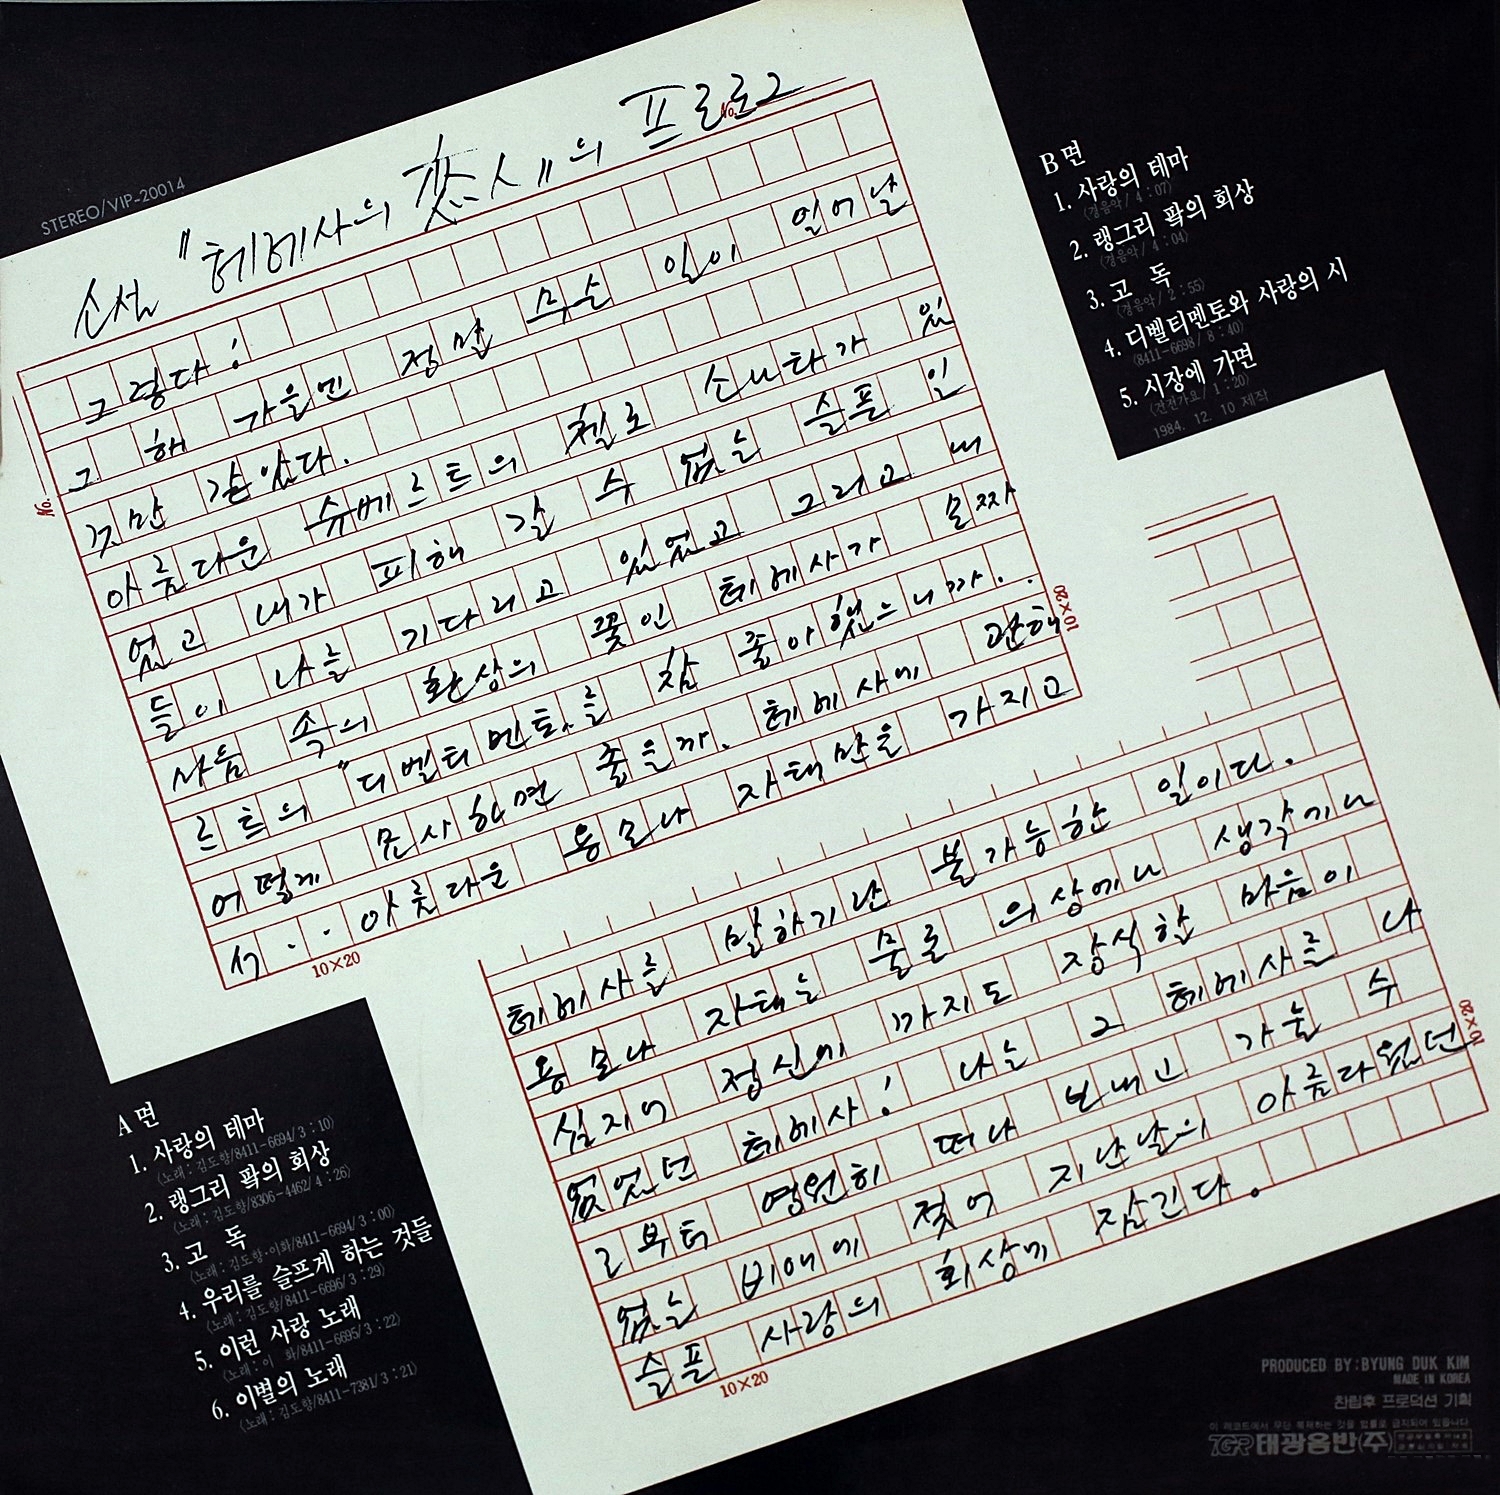 STEREO/VIP-20014
소설 "헤헤사의 恋人"의 프로로그
그렇다!
그 해 가을엔 정말 무슨 일이 일어날
것만 같았다.
아름다운 슈베르트의 첼로 소나타가 있
었고 내가 피해 갈 수 없는 슬픈 일
들이 나를 기다리고 있었고 그리고 내
사유 속의 환상의 꽃인 헤헤사가 모짜
르트의 "디벨티멘토"를 참 좋아했으니까..
어떻게 묘사하면 좋을까. 헤헤사에 관해
서.. 아름다운 용모나 자태만을 가지고
헤헤사를 말하기란 불가능한 일이다.
용모나 자태는 물론 의상에나 생각이나
심지어 정신에 까지도 장식한 마음이
없었던 헤헤사! 나는 그 헤헤사를 나
로부터 영원히 떠나 보내고 가눌 수
없는 비애에 젖어 지난날의 아름다웠던
슬픈 사랑의 회상에 잠긴다.
No.
No.
10×20
10×20
10×20
10×20
B면
1. 사랑의 테마
(경음악/4:07)
2. 랭그리 팍의 회상
(경음악/4:04)
3. 고 독
(경음악/2:55)
4. 디벨티멘토와 사랑의 시
(8411-6698/8:40)
5. 시장에 가면
(건전가요/1:20)
1984. 12. 10 제작
A면
1. 사랑의 테마
(노래:김도향/8411-6694/3:10)
2. 랭그리 팍의 회상
(노래:김도향/8306-4462/4:26)
3. 고 독
(노래:김도향·이화/8411-6694/3:00)
4. 우리를 슬프게 하는 것들
(노래:김도향/8411-6696/3:29)
5. 이런 사랑 노래
(노래:이 화/8411-6695/3:22)
6. 이별의 노래
(노래:김도향/8411-7381/3:21)
PRODUCED BY:BYUNG DUK KIM
MADE IN KOREA
찬립후 프로덕션 기획
이 레코드에서 무단 복제하는 것을 법률로 금지되어 있읍니다
TGR 태광음반(주)